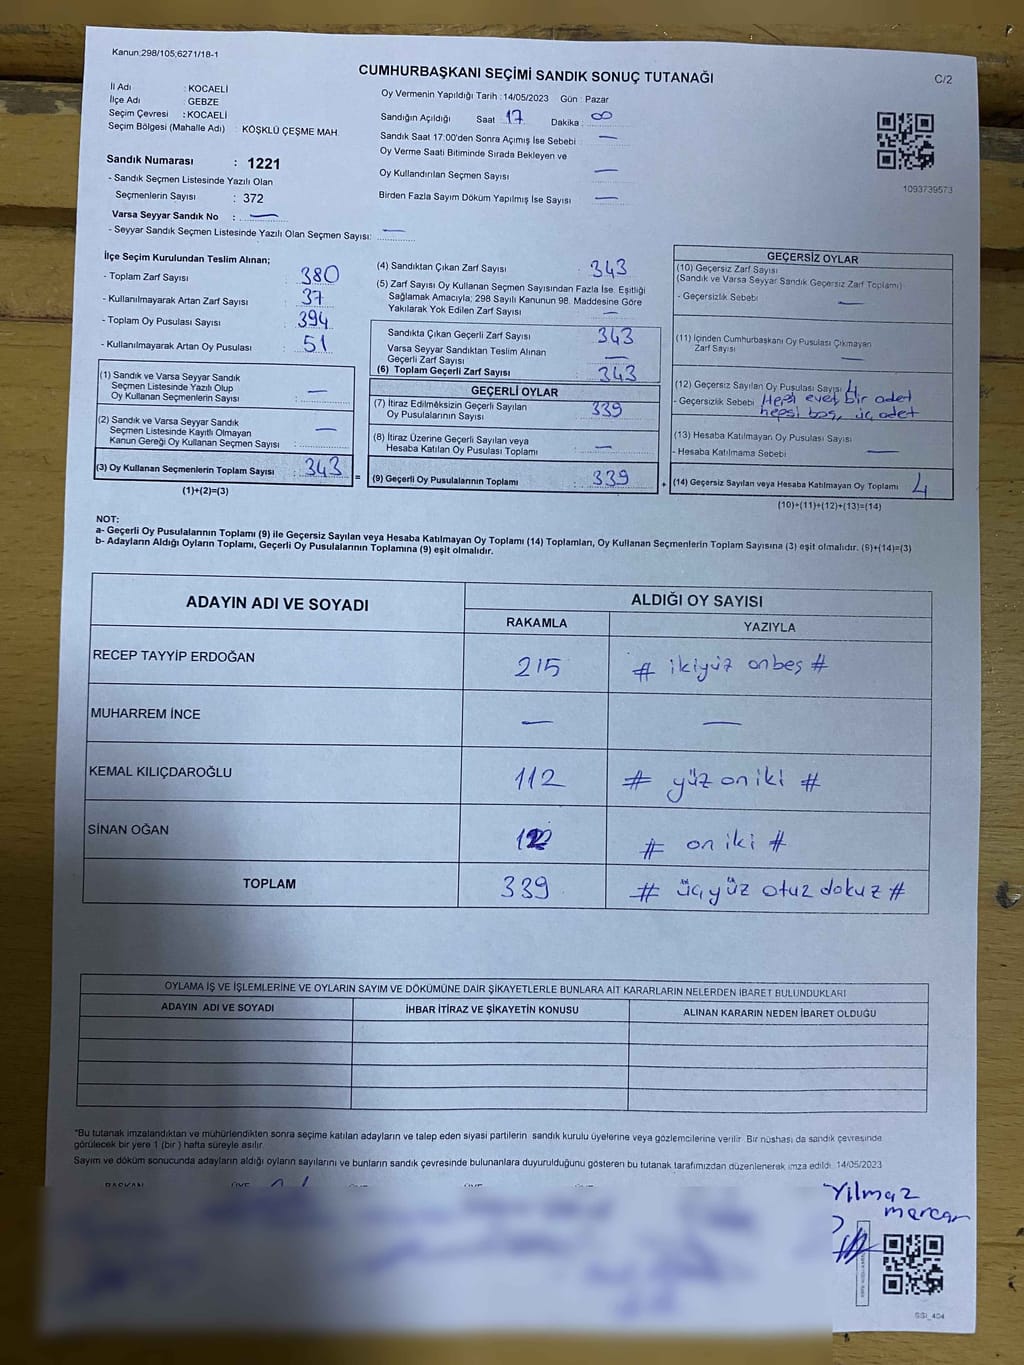 Kanun;298/105;6271/18-1
CUMHURBAŞKANI SEÇİMİ SANDIK SONUÇ TUTANAĞI
C/2
İl Adı : KOCAELİ
İlçe Adı : GEBZE
Seçim Çevresi : KOCAELİ
Seçim Bölgesi (Mahalle Adı) : KÖŞKLÜ ÇEŞME MAH.
Sandık Numarası : 1221
- Sandık Seçmen Listesinde Yazılı Olan
Seçmenlerin Sayısı : 372
Varsa Seyyar Sandık No : —
- Seyyar Sandık Seçmen Listesinde Yazılı Olan Seçmen Sayısı: —
Oy Vermenin Yapıldığı Tarih : 14/05/2023 Gün : Pazar
Sandığın Açıldığı Saat : 17 Dakika :
Sandık Saat 17:00'den Sonra Açımış İse Sebebi —
Oy Verme Saati Bitiminde Sırada Bekleyen ve
Oy Kullandırılan Seçmen Sayısı —
Birden Fazla Sayım Döküm Yapılmış İse Sayısı —
1093739573
İlçe Seçim Kurulundan Teslim Alınan;
- Toplam Zarf Sayısı : 380
- Kullanılmayarak Artan Zarf Sayısı : 37
- Toplam Oy Pusulası Sayısı : 394
- Kullanılmayarak Artan Oy Pusulası : 51
(1) Sandık ve Varsa Seyyar Sandık
Seçmen Listesinde Yazılı Olup
Oy Kullanan Seçmenlerin Sayısı : —
(2) Sandık ve Varsa Seyyar Sandık
Seçmen Listesinde Kayıtlı Olmayan
Kanun Gereği Oy Kullanan Seçmen Sayısı : —
(3) Oy Kullanan Seçmenlerin Toplam Sayısı : 343
(1)+(2)=(3)
=
(4) Sandıktan Çıkan Zarf Sayısı : 343
(5) Zarf Sayısı Oy Kullanan Seçmen Sayısından Fazla İse, Eşitliği
Sağlamak Amacıyla; 298 Sayılı Kanunun 98. Maddesine Göre
Yakılarak Yok Edilen Zarf Sayısı : —
Sandıkta Çıkan Geçerli Zarf Sayısı : 343
Varsa Seyyar Sandıktan Teslim Alınan
Geçerli Zarf Sayısı : —
(6) Toplam Geçerli Zarf Sayısı : 343
GEÇERLİ OYLAR
(7) İtiraz Edilmeksizin Geçerli Sayılan
Oy Pusulalarının Sayısı : 339
(8) İtiraz Üzerine Geçerli Sayılan veya
Hesaba Katılan Oy Pusulası Toplamı : —
(9) Geçerli Oy Pusulalarının Toplamı : 339
+
GEÇERSİZ OYLAR
(10) Geçersiz Zarf Sayısı
(Sandık ve Varsa Seyyar Sandık Geçersiz Zarf Toplamı)
- Geçersizlik Sebebi —
(11) İçinden Cumhurbaşkanı Oy Pusulası Çıkmayan
Zarf Sayısı —
(12) Geçersiz Sayılan Oy Pusulası Sayısı 4
- Geçersizlik Sebebi Hepsi evet, bir adet
hepsi boş, üç adet
(13) Hesaba Katılmayan Oy Pusulası Sayısı
- Hesaba Katılmama Sebebi —
(14) Geçersiz Sayılan veya Hesaba Katılmayan Oy Toplamı 4
(10)+(11)+(12)+(13)=(14)
NOT:
a- Geçerli Oy Pusulalarının Toplamı (9) ile Geçersiz Sayılan veya Hesaba Katılmayan Oy Toplamı (14) Toplamları, Oy Kullanan Seçmenlerin Toplam Sayısına (3) eşit olmalıdır. (9)+(14)=(3)
b- Adayların Aldığı Oyların Toplamı, Geçerli Oy Pusulalarının Toplamına (9) eşit olmalıdır.
ADAYIN ADI VE SOYADI
ALDIĞI OY SAYISI
RAKAMLA YAZIYLA
RECEP TAYYİP ERDOĞAN 215 # ikiyüz onbeş #
MUHARREM İNCE — —
KEMAL KILIÇDAROĞLU 112 # yüz on iki #
SİNAN OĞAN 12 # on iki #
TOPLAM 339 # üçyüz otuz dokuz #
OYLAMA İŞ VE İŞLEMLERİNE VE OYLARIN SAYIM VE DÖKÜMÜNE DAİR ŞİKAYETLERLE BUNLARA AİT KARARLARIN NELERDEN İBARET BULUNDUKLARI
ADAYIN ADI VE SOYADI İHBAR İTİRAZ VE ŞİKAYETİN KONUSU ALINAN KARARIN NEDEN İBARET OLDUĞU
*Bu tutanak imzalandıktan ve mühürlendikten sonra seçime katılan adayların ve talep eden siyasi partilerin sandık kurulu üyelerine veya gözlemcilerine verilir. Bir nüshası da sandık çevresinde
görülecek bir yere 1 (bir) hafta süreyle asılır.
Sayım ve döküm sonucunda adayların aldığı oyların sayılarını ve bunların sandık çevresinde bulunanlara duyurulduğunu gösteren bu tutanak tarafımızdan düzenlenerek imza edildi. 14/05/2023
Yılmaz
mercan